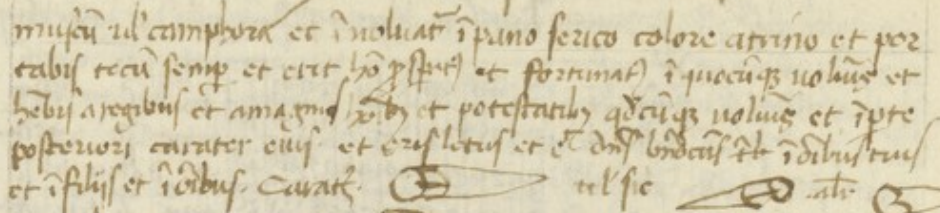 muscū ul' camphora et īuoluat᷑ ī pano serico colore citrino et por
tabis tecū semp et erit hō ꝓspet᷒ et fortunat᷒ ī quocūqꝫ uoluis et
hēbis a regibus et a magnis hōibꝫ et potestatibꝫ qdcūqꝫ uoluis et ī pte
posteriori carater eius. et eris letus et dn̄s tibi ī oībus tuis
et ī filijs et ī oībus. Carat᷑. uel sic alr